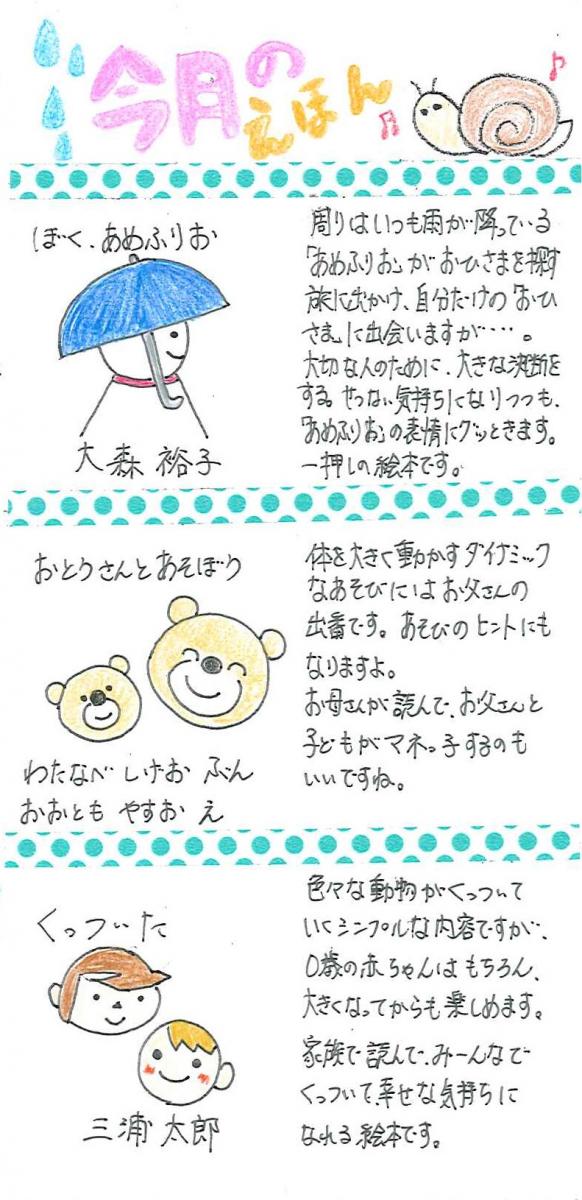 今月の
えほん
ぼく、あめふりお
大森 裕子
周りはいつも雨が降っている
「あめふりお」がおひさまを探す
旅に出かけ、自分だけの「おひ
さま」に出会いますが・・・・。
大切な人のために、大きな決断を
する。せつない気持ちになりつつも、
「あめふりお」の表情にグッときます。
一押しの絵本です。
おとうさんとあそぼう
わたなべ しげお ぶん
おおとも やすお え
体を大きく動かすダイナミック
なあそびにはお父さんの
出番です。あそびのヒントにも
なりますよ。
お母さんが読んで、お父さんと
子どもがマネっ子するのも
いいですね。
くっついた
三浦 太郎
色々な動物がくっついて
いくシンプルな内容ですが、
0歳の赤ちゃんはもちろん、
大きくなってからも楽しめます。
家族で読んで、みーんなで
くっついて、幸せな気持ちに
なれる絵本です。